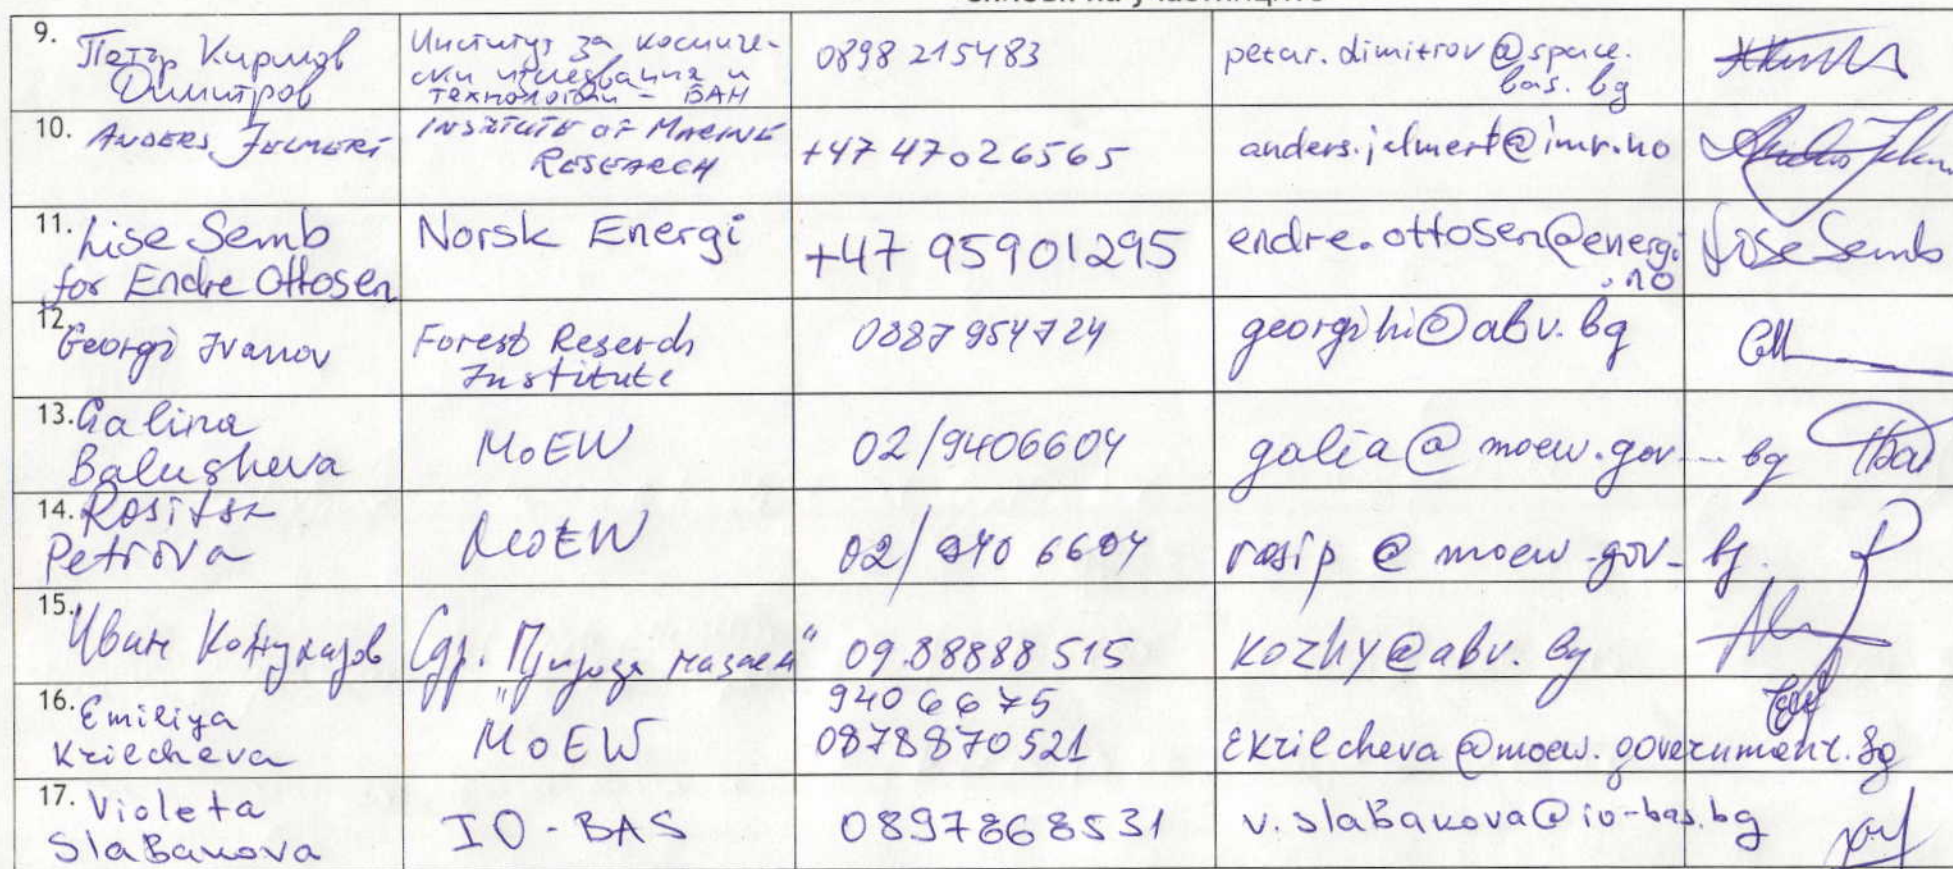 9. Петър Кирилов Димитров
Институт за космиче-
ски изследвания и
технологии - БАН
0898 215483
petar.dimitrov@space.
bas.bg
10. ANDERS JELMERT
INSTITUTE OF MARINE
RESEARCH
+47 47026565
anders.jelmert@imr.no
11. Lise Semb
for Endre Ottosen
Norsk Energi
+47 95901295
endre.ottosen@energi
.no
Lise Semb
12. Georgi Ivanov
Forest Reserch
Institute
0887 954724
georgihi@abv.bg
13. Galina
Balusheva
MoEW
02/9406604
galia@moew.gov....bg
14. Rositsa
Petrova
MoEW
02/940 6604
rosip@moew.gov.bg.
15. Иван
Сдр. "Природа назаем"
09.88888515
kozhy@abv.bg
16. Emiliya
Krilcheva
MoEW
9406675
0878870521
ekrilcheva@moew.government.bg
17. Violeta
Slabakova
IO-BAS
0897868531
v.slabakova@io-bas.bg